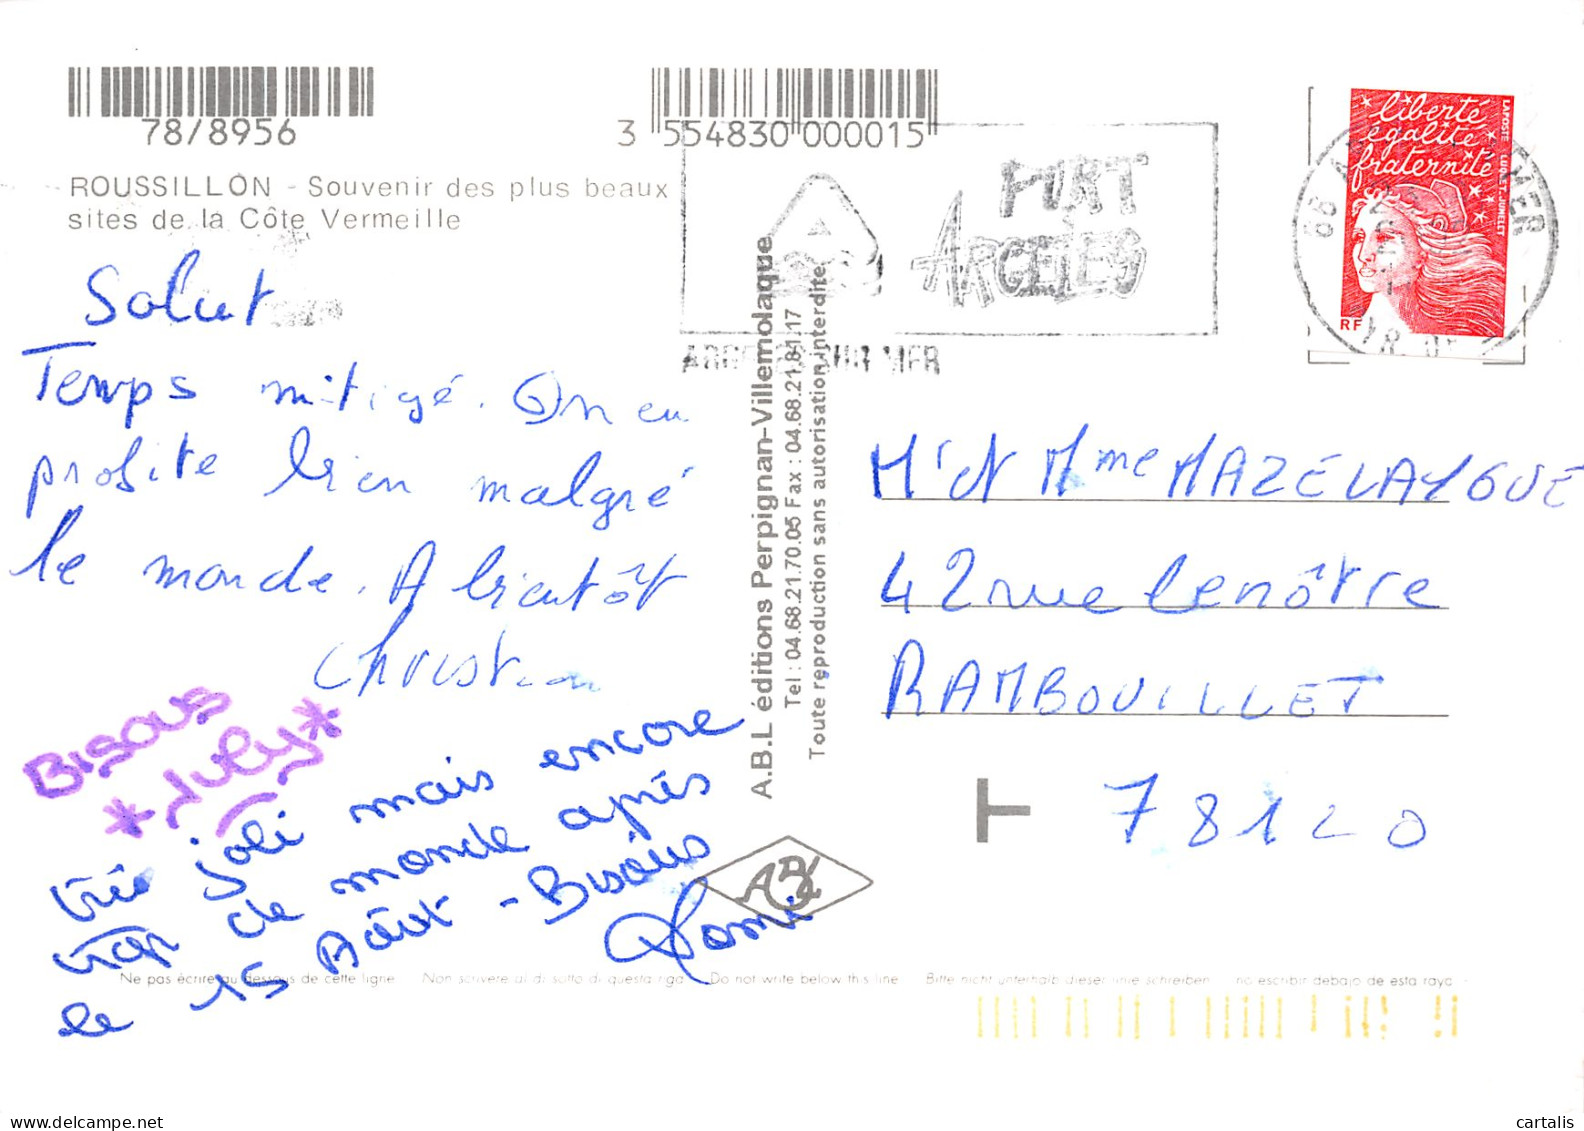 78/8956
3 554830 000015
ROUSSILLON - Souvenir des plus beaux
sites de la Côte Vermeille
Salut
Temps mitigé. On en
profite bien malgré
le monde. A bientôt
Christian
Bisous
*July*
très joli mais encore
trop de monde après
le 15 Août - Bisous
Domi
A.B.L éditions Perpignan-Villemolaque
Tel : 04.68.21.70.05 Fax : 04.68.21.81.17
Toute reproduction sans autorisation interdite
PORT
ARGELÈS
ARGELES SUR MER
liberté
égalité
fraternité
LA POSTE LUQUET-JUMELET
RF
66
MER
Mr et Mme MAZELAYGUE
42 rue Lenôtre
RAMBOUILLET
T 78120
ABL
Ne pas écrire au dessous de cette ligne Non scrivere al di sotto di questa riga Do not write below this line Bitte nicht unterhalb dieser linie schreiben no escribir debajo de esta raya
delcampe.net
cartalis